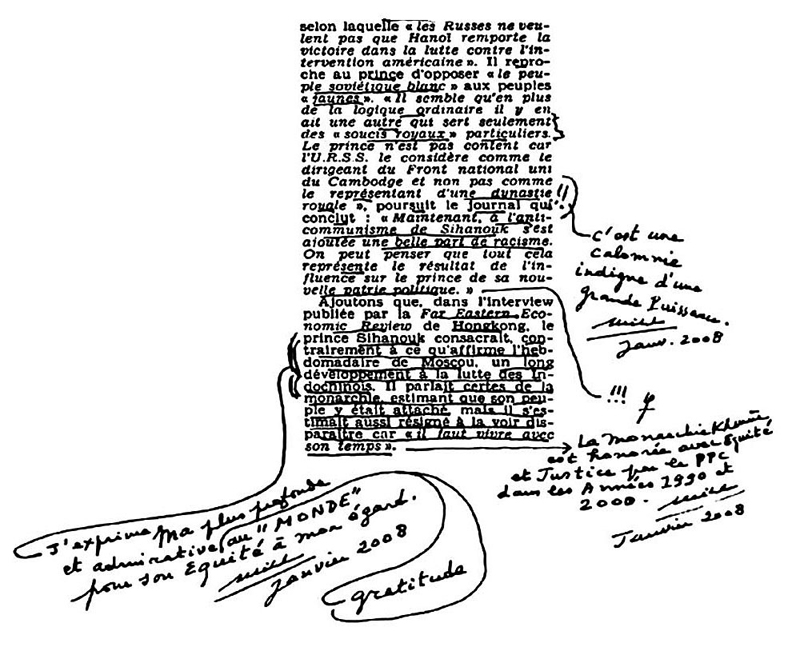 selon laquelle « les Russes ne veu-
lent pas que Hanoï remporte la
victoire dans la lutte contre l'in-
tervention américaine ». Il repro-
che au prince d'opposer « le peu-
ple soviétique blanc » aux peuples
« jaunes ». « Il semble qu'en plus
de la logique ordinaire il y en
ait une autre qui sert seulement
des « soucis royaux » particuliers.
Le prince n'est pas content car
l'U.R.S.S. le considère comme le
dirigeant du Front national uni
du Cambodge et non pas comme
le représentant d'une dynastie
royale », poursuit le journal qui
conclut : « Maintenant, à l'anti-
communisme de Sihanouk s'est
ajoutée une belle part de racisme.
On peut penser que tout cela
représente le résultat de l'in-
fluence sur le prince de sa nou-
velle patrie politique. »
Ajoutons que, dans l'interview
publiée par la Far Eastern Eco-
nomic Review de Hongkong, le
prince Sihanouk consacrait, con-
trairement à ce qu'affirme l'heb-
domadaire de Moscou, un long
développement à la lutte des In-
dochinois. Il parlait certes de la
monarchie, estimant que son peu-
ple y était attaché, mais il s'es-
timait aussi résigné à la voir dis-
paraître car « il faut vivre avec
son temps ».
!!
c'est une
calomnie
indigne d'une
grande Puissance.
Janv. 2008
!!!
La Monarchie Khmère
est honorée avec Equité
et Justice par le PPC
dans les Années 1990 et
2000.
Janvier 2008
J'exprime ma plus profonde
et admirative au "MONDE"
pour son Equité à mon égard.
Janvier 2008
gratitude